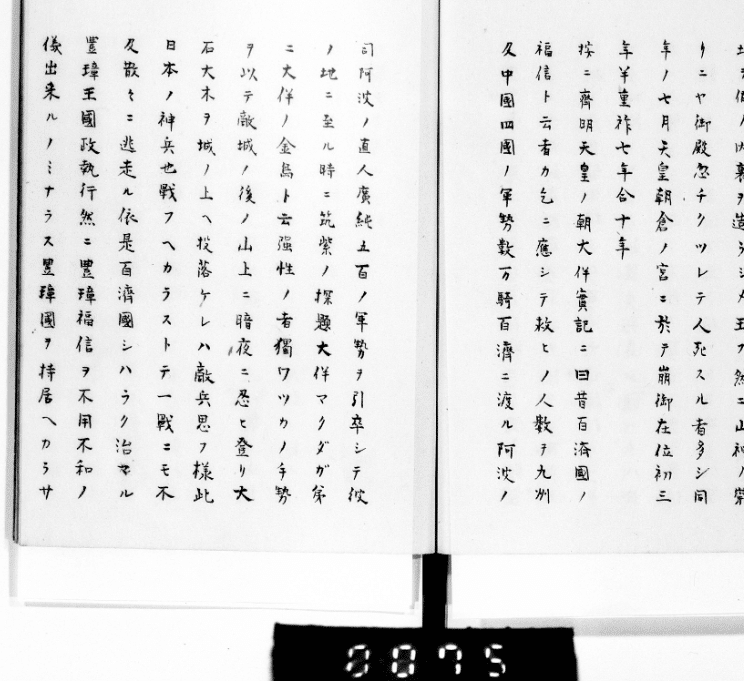 リニヤ御殿忽チクツレテ人死スル者多シ同
年ノ七月天皇朝倉ノ宮ニ於テ崩御在位初三
年羊重祚七年合十年
按ニ齊明天皇ノ朝大伴實記ニ曰昔百濟國ノ
福信ト云者カ乞ニ應シテ救ヒノ人数ヲ九州
及中國四國ノ軍勢数万騎百濟ニ渡ル阿波ノ
司阿波ノ直人廣純五百ノ軍勢ヲ引卒シテ彼
ノ地ニ至ル時ニ筑紫ノ探題大伴マクダガ弟
ニ大伴ノ金烏ト云强性ノ者獨ワツカノ手勢
ヲ以テ敵城ノ後ノ山上ニ暗夜ニ忍ヒ登リ大
石大木ヲ城ノ上ヘ投落ケレハ敵兵思フ様此
日本ノ神兵也戰フヘカラストテ一戰ニモ不
及散々ニ逃走ル依是百濟國シハラク治マル
豊璋王國政執行然ニ豊璋福信ヲ不用不和ノ
儀出来ルノミナラス豊璋國ヲ持居ヘカラサ
0075